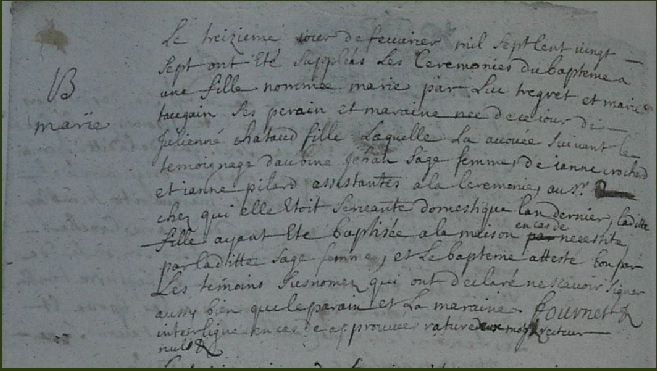 Le treizieme jour de feuvrier mil sept cent vingt
sept ont Eté suppléés Les Ceremonies du bapteme a
B
une fille nommée marie par Luc tregret et marie
marie
taugain ses perain et maraine née de ce jour de
Julienne chataud fille Laquelle La avouée suivant le
temoignage daubine Jehan Sage femme, de janne rochard
et janne pilard assistantes a la Ceremonie, au Sr.
chez qui elle Etoit servante domestique Lan dernier, laditte
fille ayant Eté baptisée a la maison en cas de necessité
par laditte Sage femme, et Le bapteme attesté bon par
Les temoins susnomez qui ont declaré ne scavoir signer
aussy bien que le parain et La maraine fournet
interligne en cas de approuvé rature mot recteur
nuls